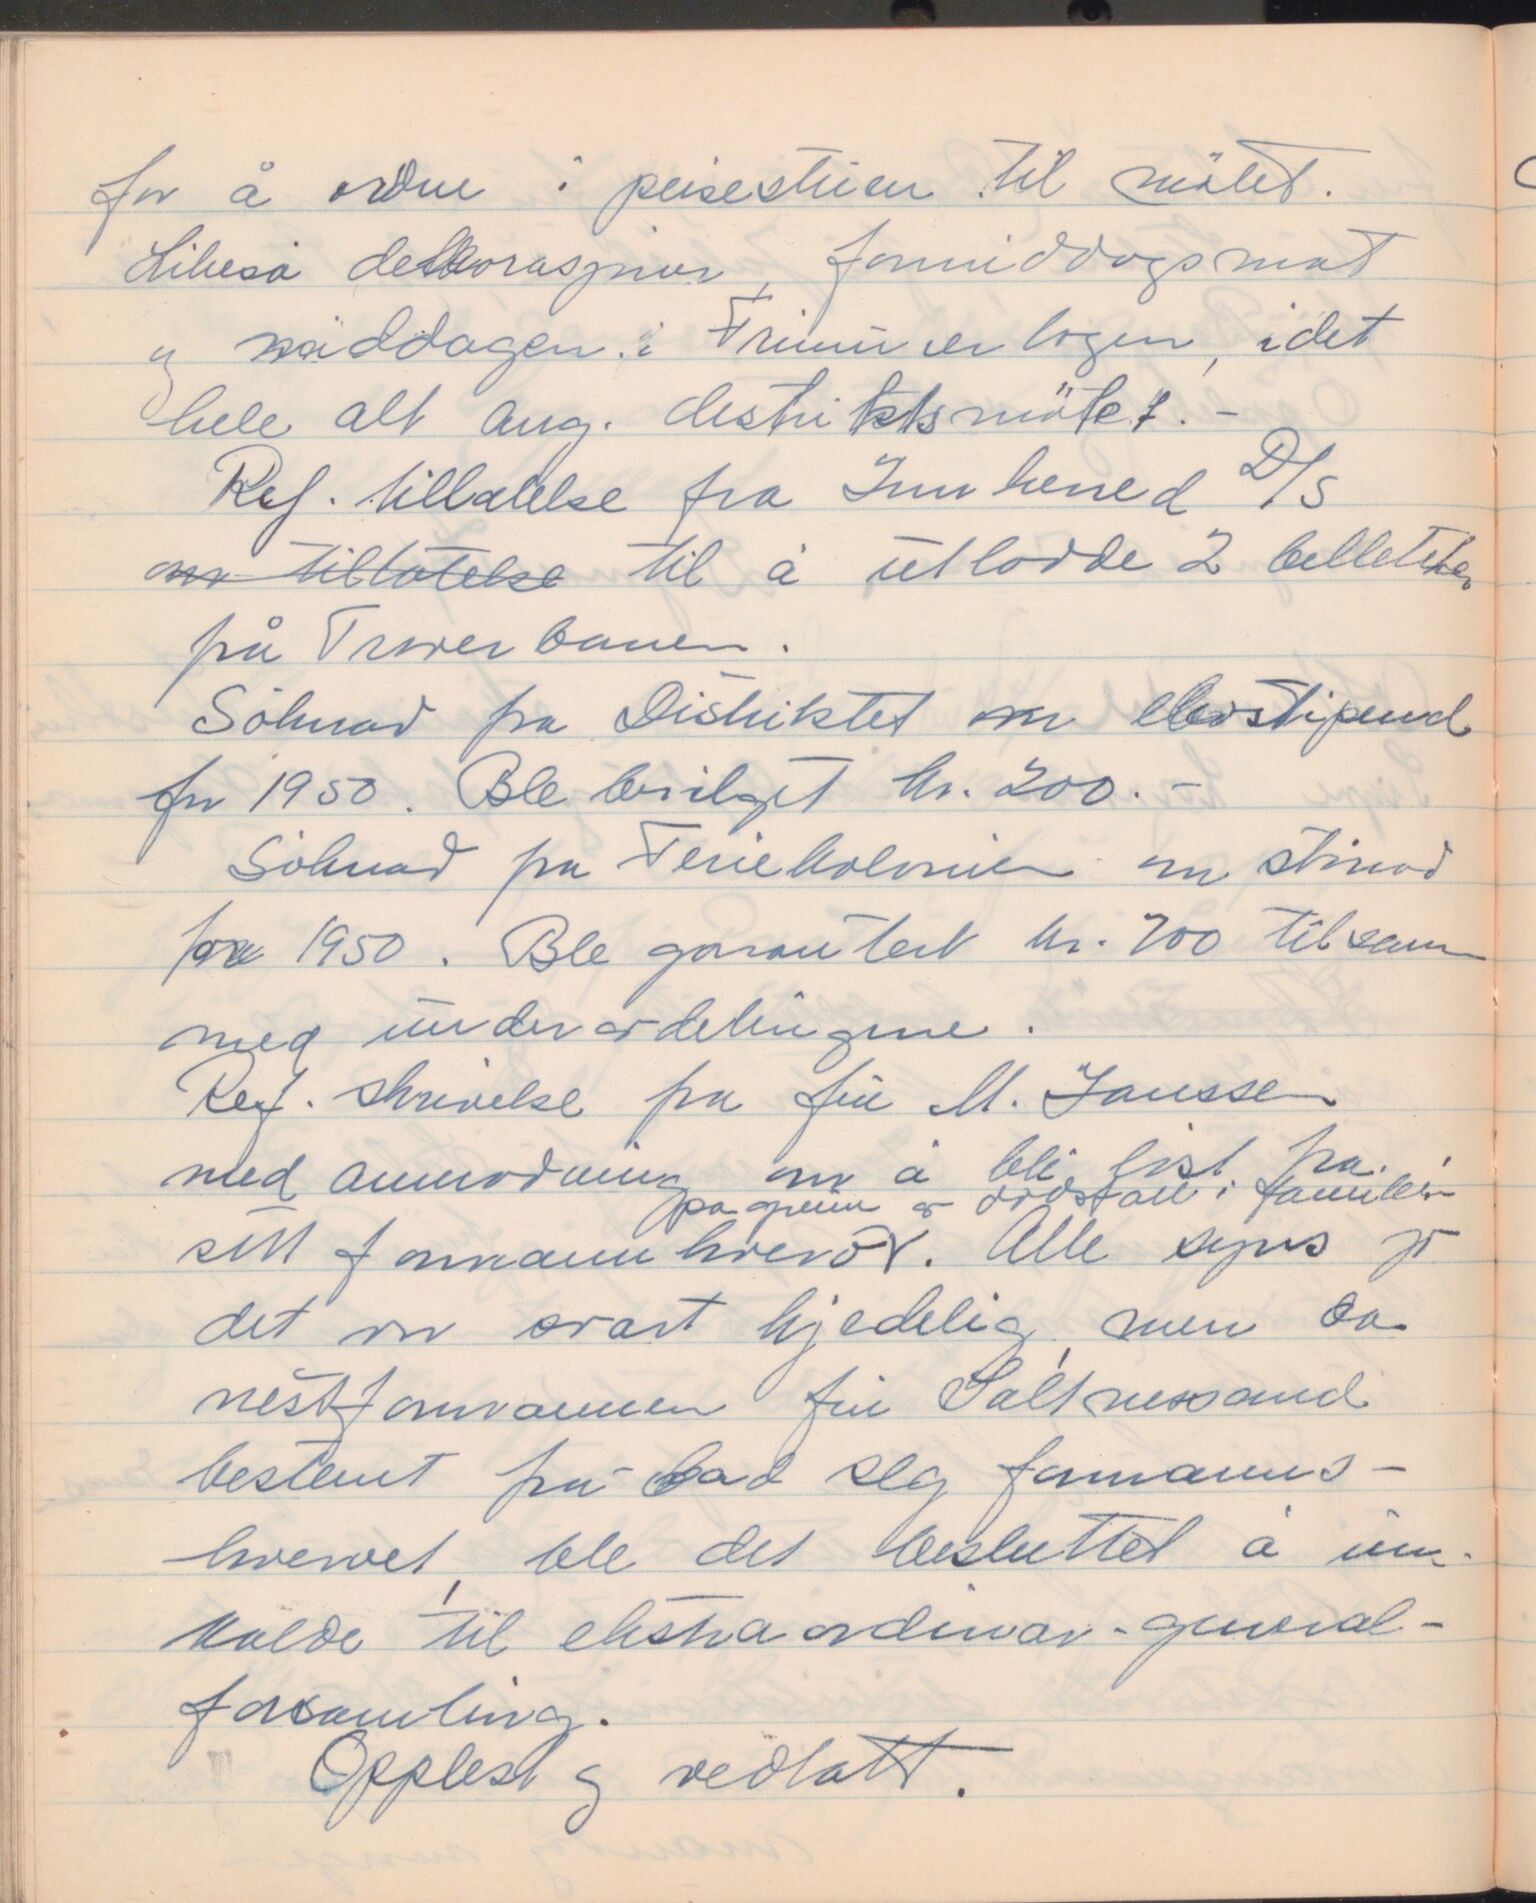 for å ordne i peisestuen til mötet.
Likeså dekorasjoner, formiddagsmat
og middagen i Frimurerlogen, i det
hele alt ang. distriktsmötet. -
Ref. tillatelse fra Innherred D/S
om tillatelse til å utlodde 2 billetter
på Traverbanen.
Söknad fra Distriktet om elevstipend
for 1950. Ble bevilget kr. 200.-
Söknad fra Feriekolonien om stönad
for 1950. Ble garantert kr. 700 tilsam
med underavdelingene.
Ref. skrivelse fra fru M. Janssen
med anmodning om å bli löst fra
på grunn av dödsfall i familien
sitt formannhverv. Alle synes jo
det var svært kjedelig, men da
nestformannen fru Saltnessand
bestemt fra bad seg formanns-
hvervet, ble det besluttet å inn-
kalde til ekstraordinær-general-
forsamling.
Opplest og vedtatt.